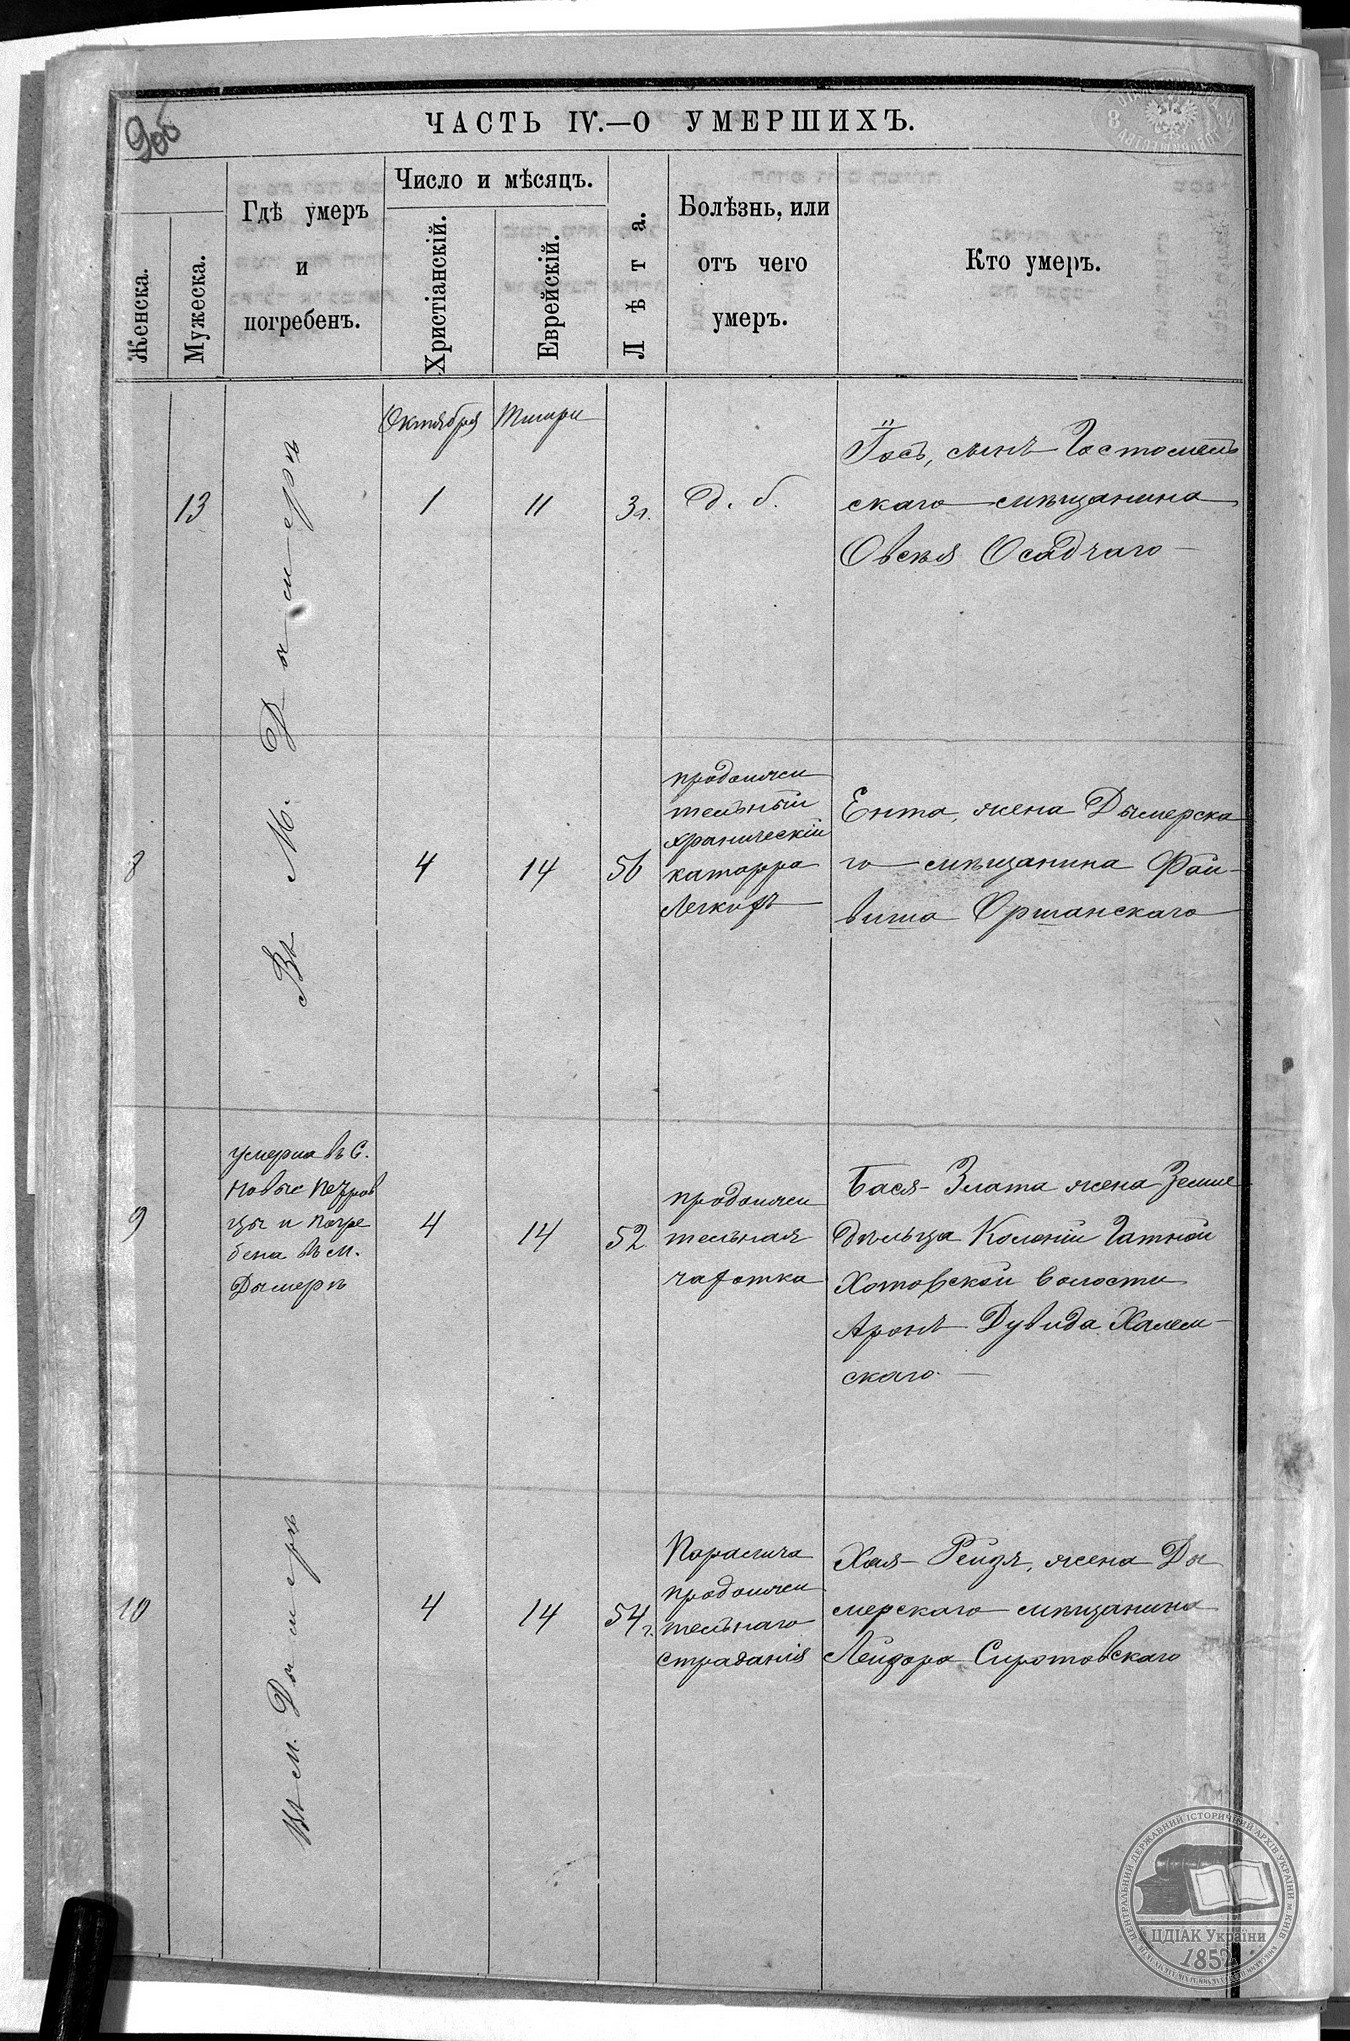 90б
ЧАСТЬ IV.—О УМЕРШИХЪ.
Женска.
Мужеска.
Гдѣ умеръ
и
погребенъ.
Число и мѣсяцъ.
Христіанскій.
Еврейскій.
Лѣта.
Болѣзнь, или
отъ чего
умеръ.
Кто умеръ.
Октября Тишри
13
Въ М. Дымерѣ
1
11
3 г.
д. б.
Іось, сынъ Гостомель
скаго мѣщанина
Овсѣя Осадчаго
8
4
14
56
продолжи
тельный
храническій
катарра
Легкихъ
Ента, жена Дымерска
го мѣщанина Фай-
виша Оршанскаго
9
умерла въ С.
Новые Петров
цы и погре
бена въ м.
Дымерѣ
4
14
52
продолжи
тельная
чахотка
Бася-Злата жена Земле
дѣльца Колоніи Гатной
Хотовской волости
Аронъ Дувида Халем-
скаго.
10
Въ м. Дымерѣ
4
14
54 г.
Паралича
продолжи
тельнаго
страданія
Хая-Рейзя, жена Ды
мерскаго мѣщанина
Лейзора Сиротовскаго
ЦЕНТРАЛЬНИЙ ДЕРЖАВНИЙ ІСТОРИЧНИЙ АРХІВ УКРАЇНИ м. КИЇВ
ЦДІАК України
1852